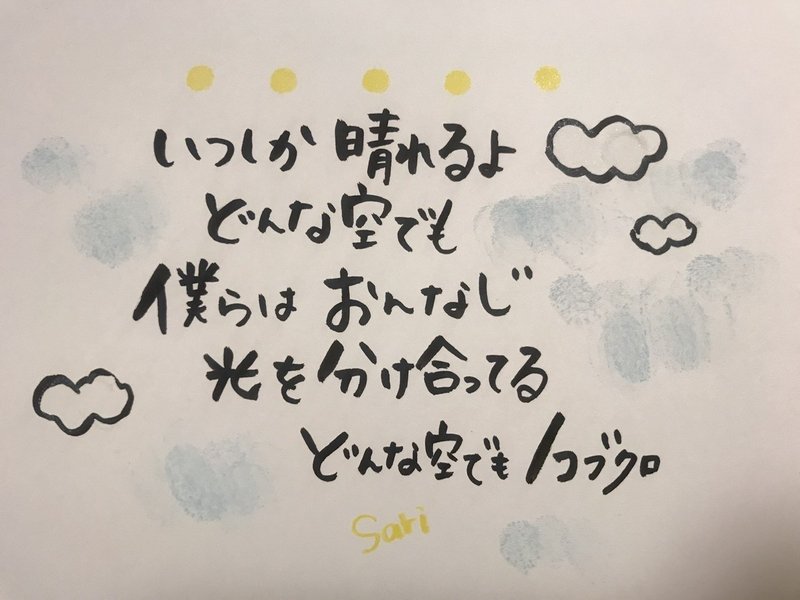 いつしか 晴れるよ
どんな空でも
僕らは おんなじ
光を分け合ってる
どんな空でも/コブクロ
Sari